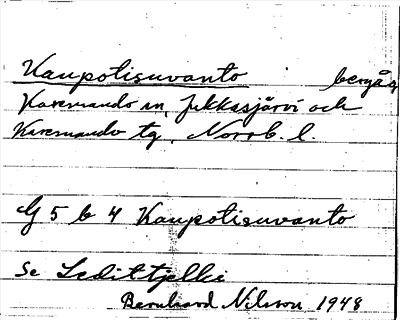 Kaupotisuvanto bergåg
Karesuando sn, Jukkasjärvi och
Karesuando tg, Norrb. l.
G 5 b 4 Kaupotisuvanto
Se Ledittjelli
Bernhard Nilsson 1948